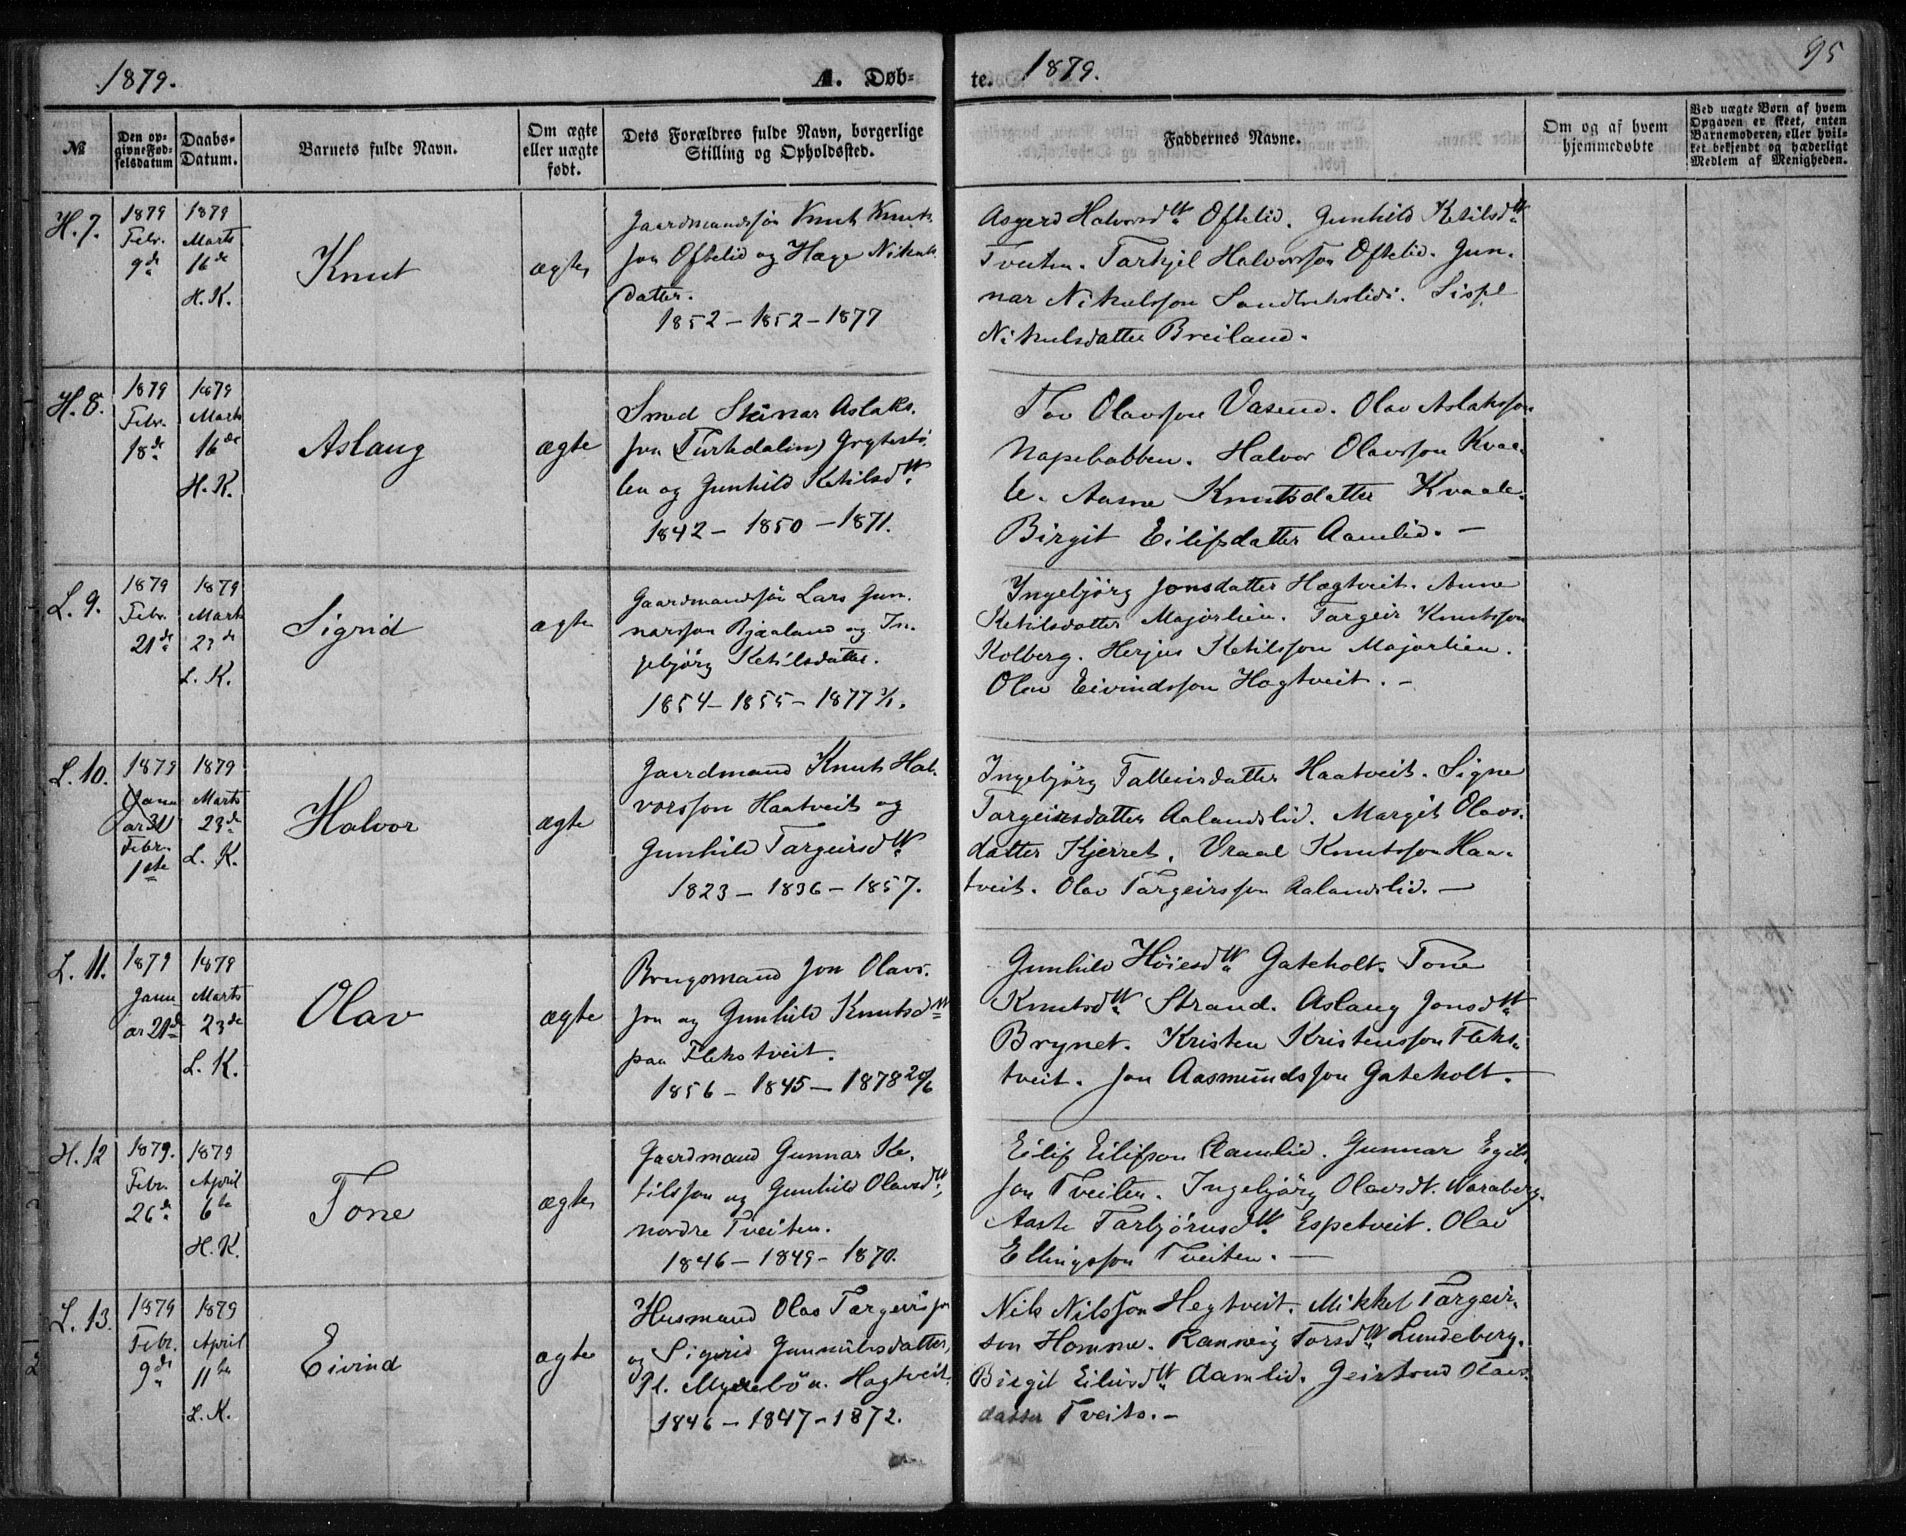 1879.
A. Døb-
te.
1879.
95
№
Den op-
givne Fød-
selsdatum
Daabs-
Datum.
Barnets fulde Navn.
Om ægte
eller uægte
født.
Dets Forældres fulde Navn, borgerlige
Stilling og Opholdssted.
Faddernes Navne.
Om og af hvem
hjemmedøbte
Ved uægte Born af hvem
Opgaven er skeet, enten
Barnemoderen, eller hvil-
ket bekjendt og hæderligt
Medlem af Menigheden.
H. 7.
1879
Febr.
9de
1879
Marts
16de
H. K.
Knut
ægte
Gaardmandssøn Knut Knuts-
son Oftelid og Hæge Nikuls
datter.
1852 - 1852 - 1877
Asgerd Halvorsdtr Oftelid. Gunhild Ketilsdtr
Tveiten. Tarkjel Halvorsson Oftelid. Gun-
nar Nikulsson Sandbrekslid. Sissel
Nikulsdatter Breiland.
H. 8.
1879
Febr.
18de
1879
Marts
16de
H. K.
Aslaug
ægte
Smed Steinar Aslaks-
son (Turkdalin) Grytestø
len og Gunhild Ketilsdtr
1842 - 1850 - 1871.
Tov Olavsson Vasend. Olav Aslaksson
Napebabben. Halvor Olavsson Kvaa-
le. Aasne Knutsdatter Kvaale.
Birgit Eilifsdatter Aamlid. -
L. 9.
1879
Febr.
21de
1879
Marts
23de
L. K.
Sigrid
ægte
Gaardmandssøn Lars Gun-
narsson Bjaaland og In-
gebjørg Ketilsdatter.
1854 - 1855 - 1877 3/1.
Ingebjörg Jonsdatter Hægtveit. Anne
Ketilsdatter Majorlien. Targeir Knutsson
Kolberg. Herjus Ketilsson Majorlien.
Olav Eivindsson Hogtveit. -
L. 10.
1879
Janu
ar 30
Febr.
1ste
1879
Marts
23de
L. K.
Halvor
ægte
Gaardmand Knut Hal-
vorsson Haatveit og
Gunhild Targeirsdtr
1823 - 1836 - 1857.
Ingebjörg Talleivsdatter Haatveit. Signe
Targeirsdatter Aalandslid. Margit Olavs-
datter Kjerret. Vraal Knutsson Haa-
tveit. Olav Targeirsson Aalandslid. -
L. 11.
1879
Janu
ar 21de
1879
Marts
23de
L. K.
Olav
ægte
Brugsmand Jon Olavs-
son og Gunhild Knutsdtr
paa Flekstveit.
1856 - 1845 - 1878 20/6
Gunhild Høiesdtr Gateholt. Tone
Knutsdtr Strand. Aslaug Jonsdtr
Brynet. Kristen Kristensson Fleks-
tveit. Jon Aasmundsson Gateholt. -
H. 12
1879.
Febr.
26de
1879
April
6te
H. K.
Tone
ægte
Gaardmand Gunnar Ke-
tilsson og Gunhild Olavsdtr,
nordre Tveiten.
1846 - 1849 - 1870.
Eilif Eilifson Aamlid. Gunnar Egils
son Tveiten. Ingebjörg Olavsdt. Naraberg.
Aaste Tarbjörnsdtr Espetveit. Olav
Ellingsson Tveiten. -
L. 13.
1879
Febr.
9de
1879
April
11te
L. K.
Eivind
ægte
Husmand Olav Targeirsson
og Sigrid Gunnulvsdatter,
Pl. Myrebön. Hogtveit.
1846 - 1847 - 1872.
Nils Nilsson Hegtveit. Mikkel Targeir-
son Homme. Ranneig Torsdtr Lundeberg.
Birgit Eilivsdtr Aamlid. Geirtrud Olavs-
datter Tveito. -